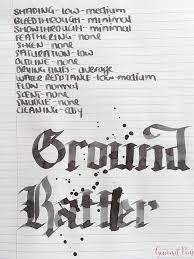 SHADING-low-medium
BLEEDTHROUGH-minimal
SHOWTHROUGH-minimal
FEATHERING-none
SHEEN-none
SATURATION-low
OUTLINE-none
DRYING TIMES-average
WATER RESISTANCE-low-medium
FLOW-normal
SCENT-none
SMUDGE-none
CLEANING-easy
Ground
Rattler